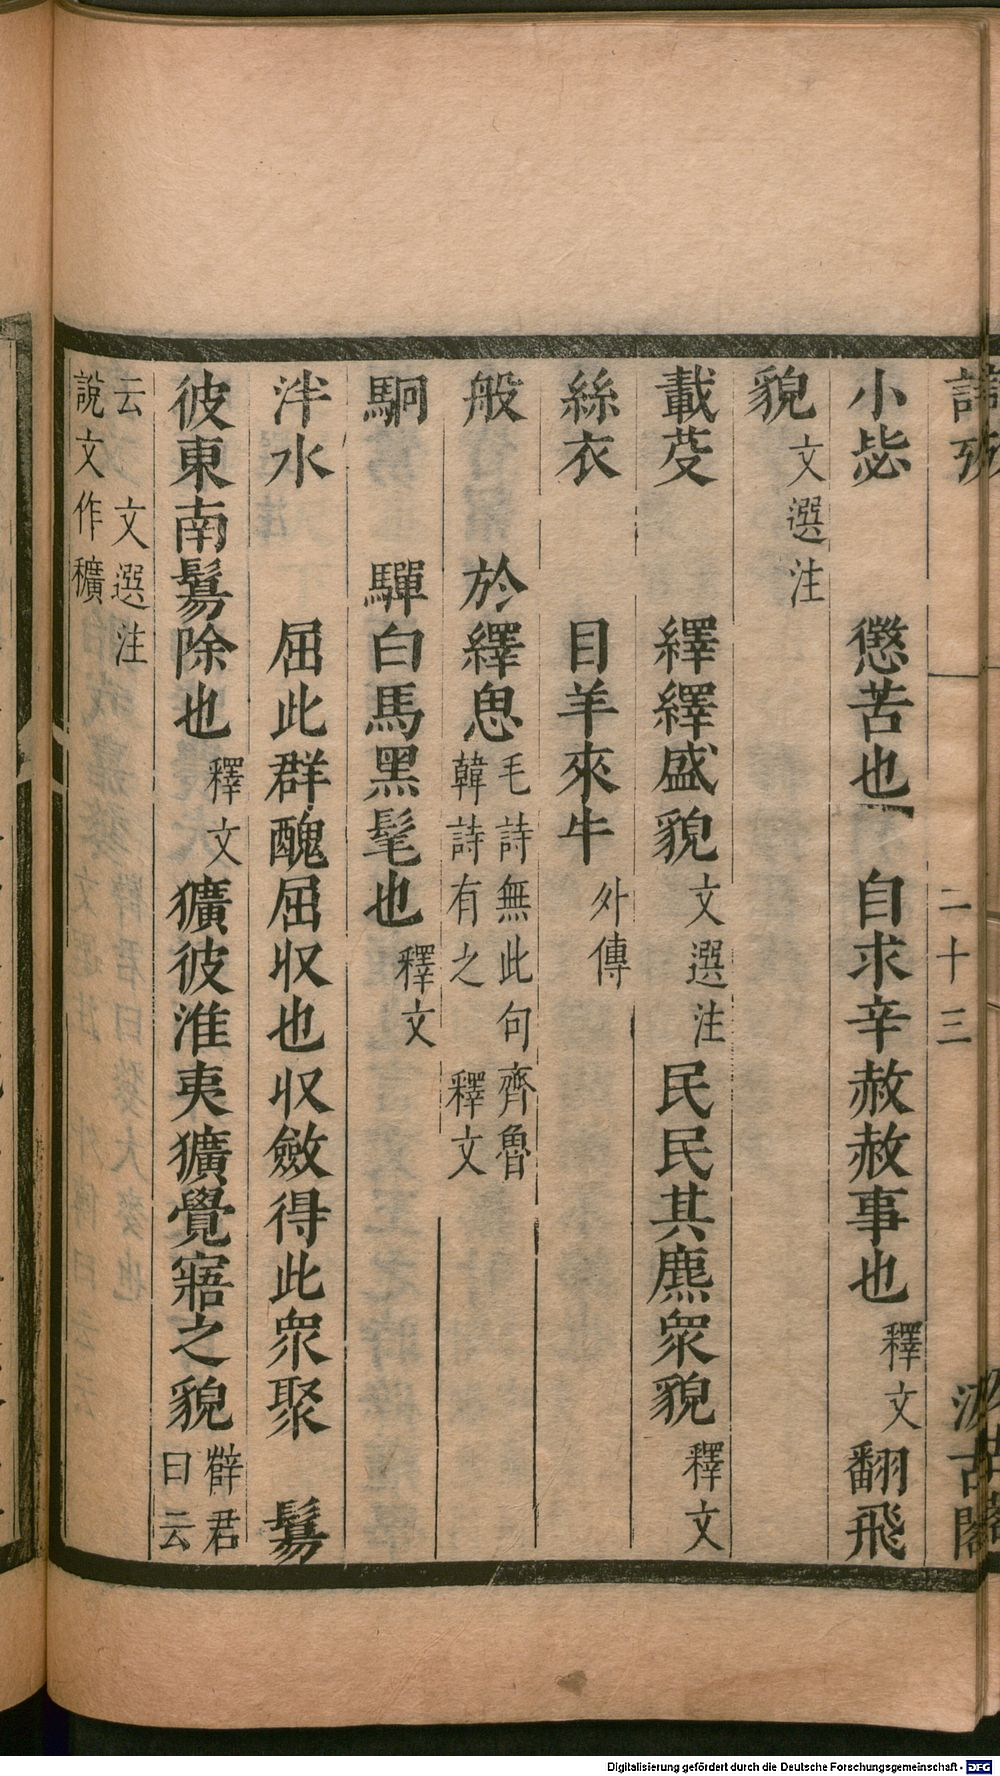 詩攷 二十三 汲古閣
小毖 懲苦也 自求辛赦赦事也 釋文 翻飛
貌 文選注
載芟 繹繹盛貌 文選注 民民其麃衆貌 釋文
絲衣 自羊來牛 外傳
般 於繹思 毛詩無此句齊魯
韓詩有之 釋文
駉 驒白馬黑髦也 釋文
泮水 屈此群醜屈收也收斂得此衆聚 鬄
彼東南鬄除也 釋文 獷彼淮夷獷覺寤之貌 薛君
曰云
云 文選注
說文作穬
Digitalisierung gefördert durch die Deutsche Forschungsgemeinschaft - DFG